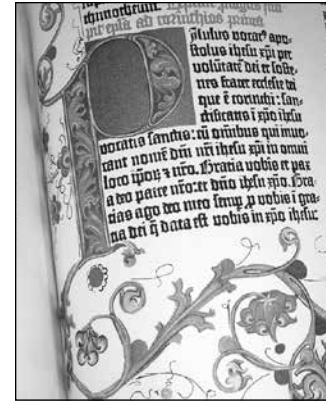 pit epl'a ad corinthios prima
Paulus vocat⁹ apo-
stolus ihesu xp̄i per
volūtatē dei et soste-
nes frater ecclesie dei
que ē corinthi: san-
ctificatis ī xp̄o ihesu
vocatis sanctis: cū omnibus qui invo-
cant nomē dn̄i nr̄i ihesu xp̄i in omni
loco ip̄oꝝ ⁊ nr̄o. Gratia vobis et pax
a deo patre nr̄o: et dn̄o ihesu xp̄o. Gra-
tias ago deo meo semp̱ ꝓ vobis ī gra-
tia dei q̄ data est vobis in xp̄o ihesu: